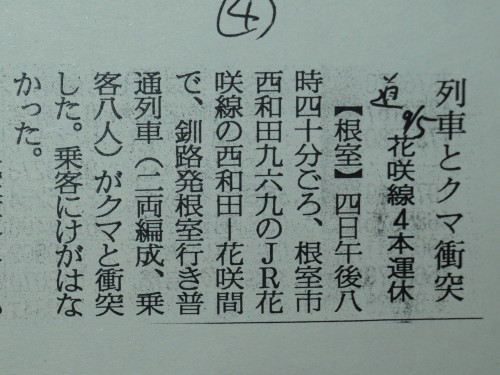 ④
列車とクマ衝突
道 9/5
花咲線4本運休
【根室】四日午後八
時四十分ごろ、根室市
西和田九六九のJR花
咲線の西和田―花咲間
で、釧路発根室行き普
通列車(二両編成、乗
客八人)がクマと衝突
した。乗客にけがはな
かった。